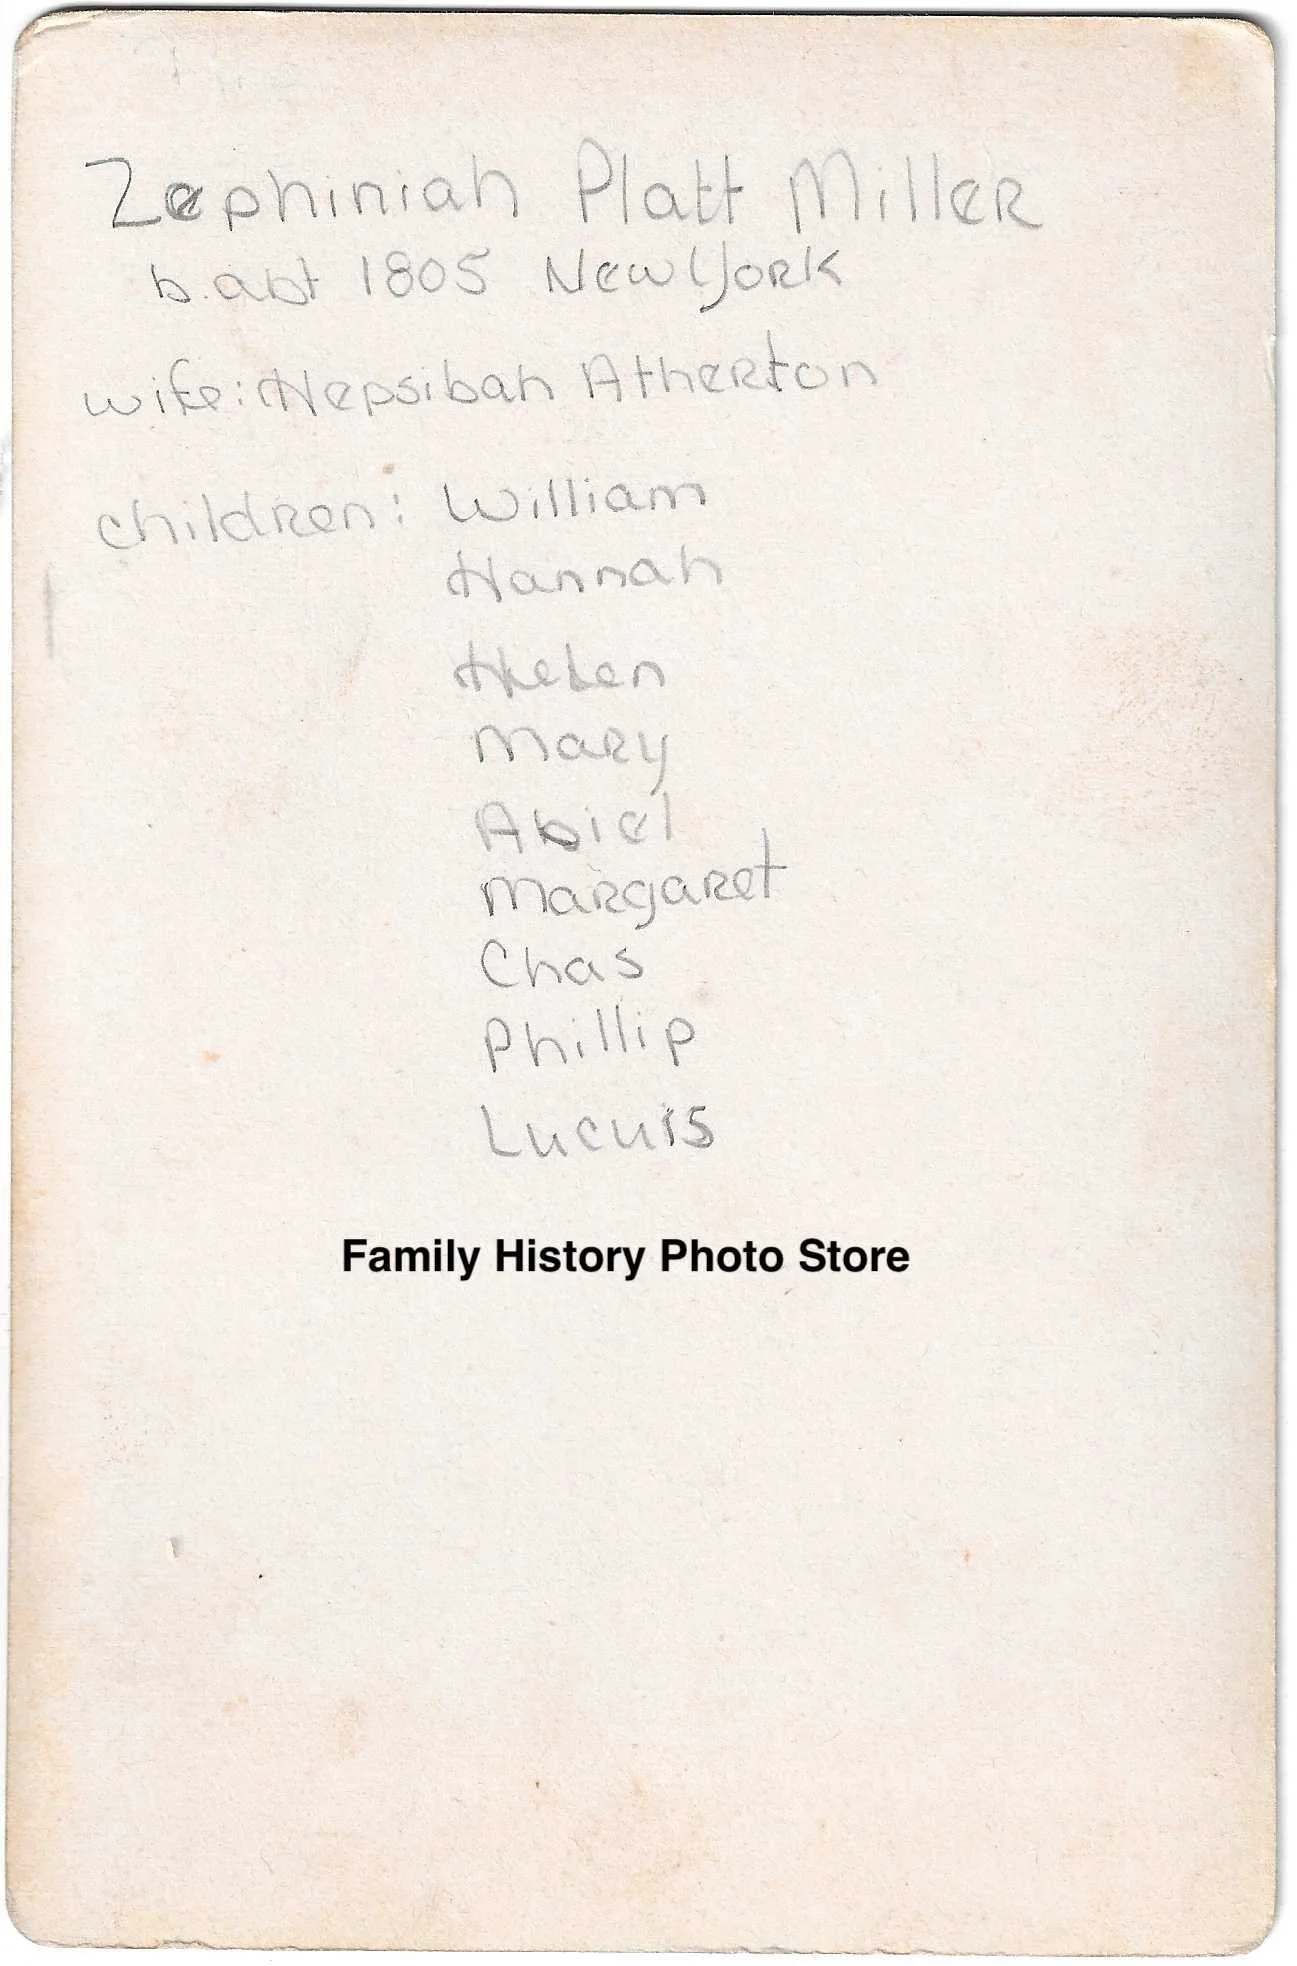 Zephiniah Platt Miller
b. abt 1805 New York
wife: Hepsibah Atherton
children: William
Hannah
Helen
Mary
Abiel
Margaret
Chas
Phillip
Lucuis
Family History Photo Store